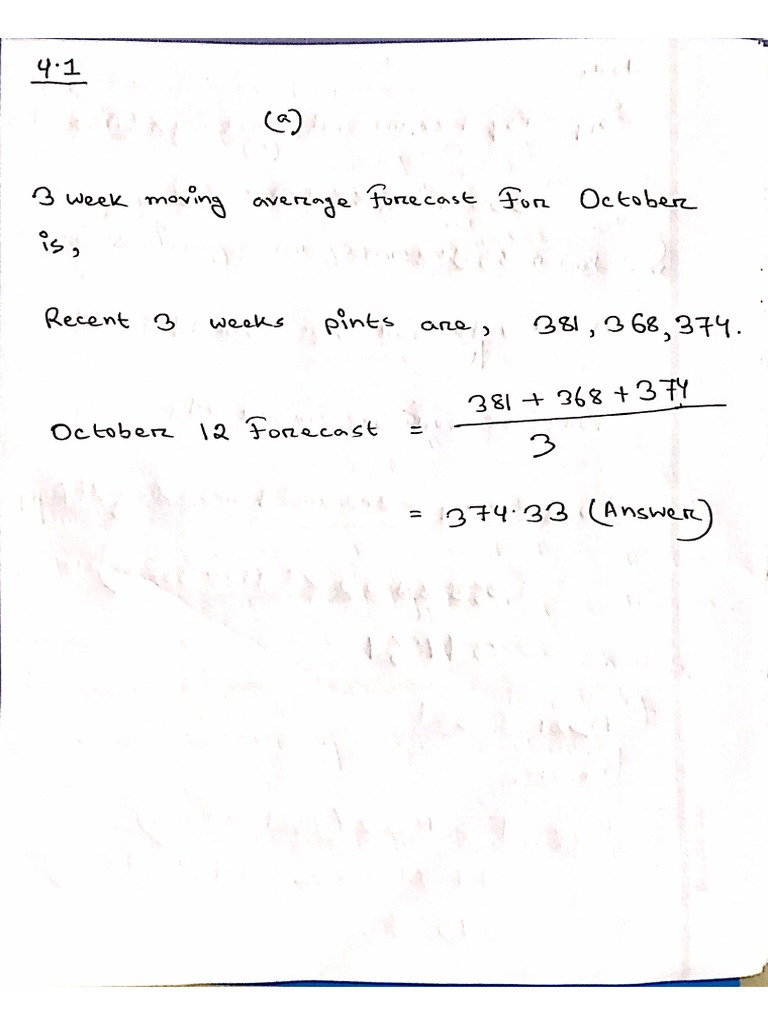 4.1
(a)
3 week moving average Forecast For October
is,
Recent 3 weeks pints are, 381, 368, 374.
381 + 368 + 374
October 12 Forecast = 
3
= 374.33 (Answer)